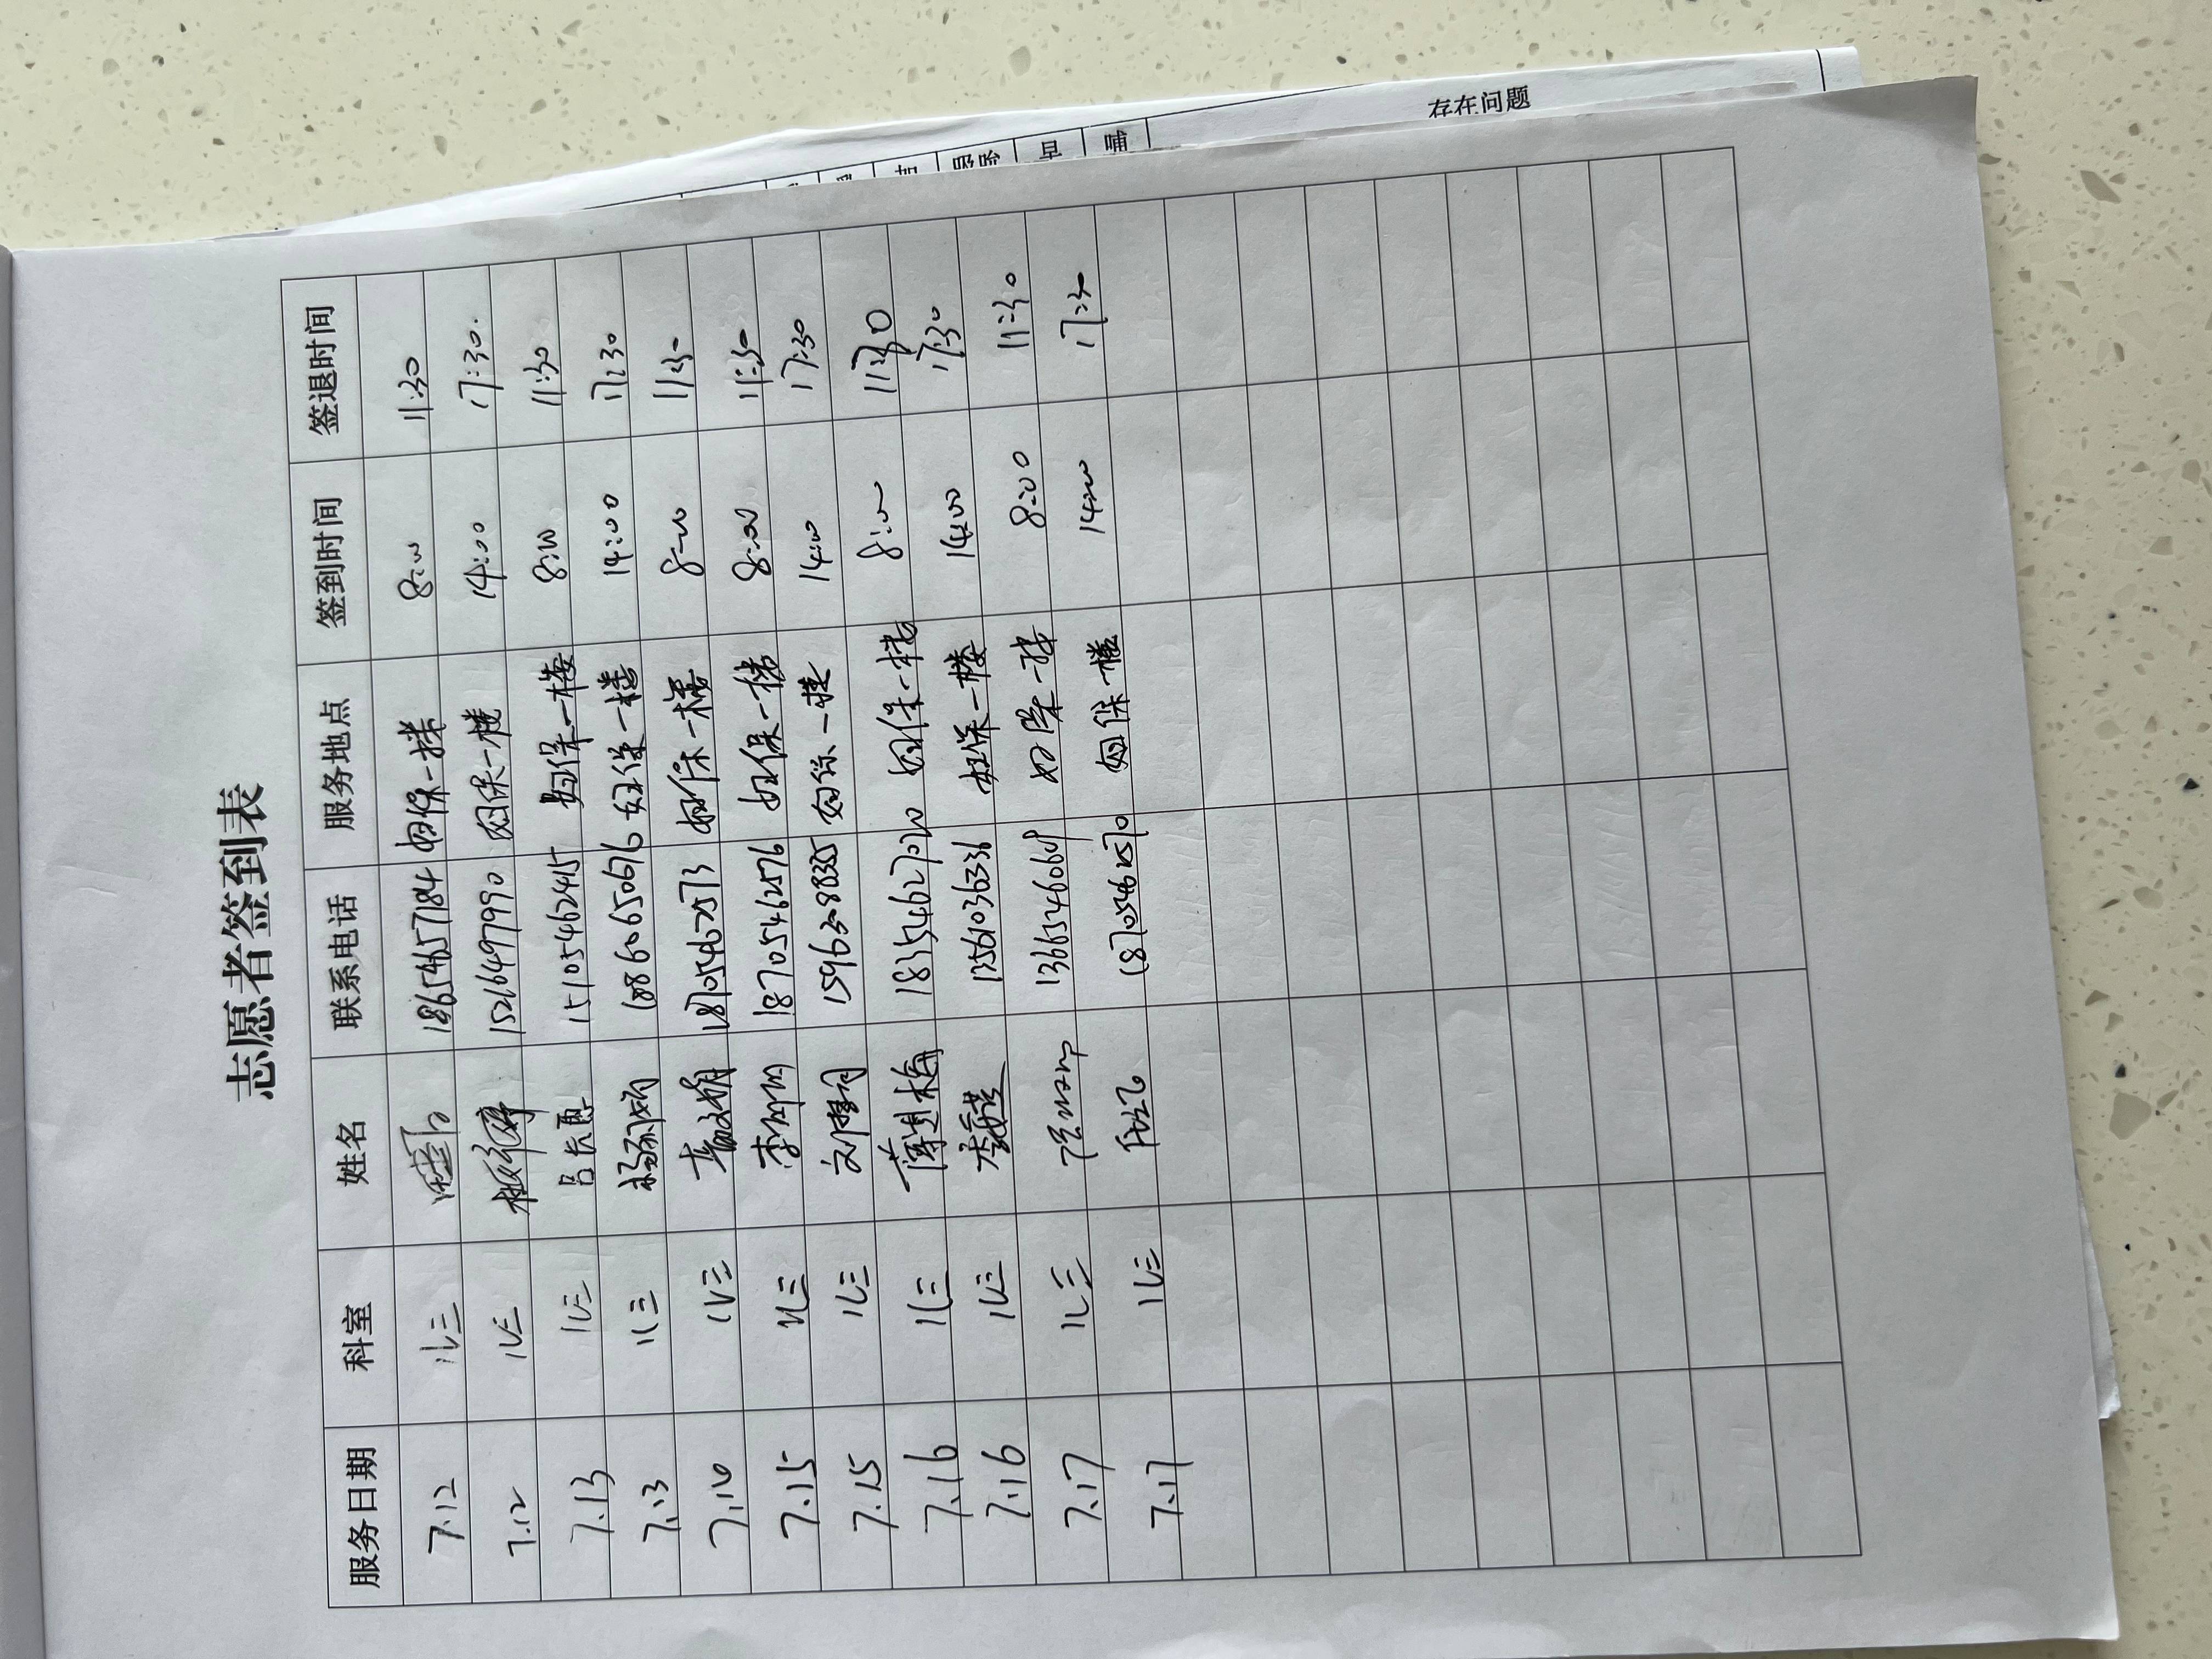 志愿者签到表
服务日期 科室 姓名 联系电话 服务地点 签到时间 签退时间
7.12 儿三 18654657184 妇保一楼 8:00 11:30
7.12 儿三 15216497990 妇保一楼 14:00 17:30
7.13 儿三 吕长惠 15105462415 妇保一楼 8:00 11:30
7.13 儿三 18860650676 妇保一楼 14:00 17:30
儿三 18705462573 妇保一楼 8:00 11:30
7.15 儿三 18705462576 妇保一楼 8:00 11:30
7.15 儿三 妇保一楼 14:00 17:30
7.16 儿三 薄进梅 18354627020 妇保一楼 8:00 11:30
7.16 儿三 17561036336 妇保一楼 14:00 17:30
7.17 儿三 妇保一楼 8:00 11:30
7.17 儿三 妇保一楼 14:00 17:30
存在问题
早
哺